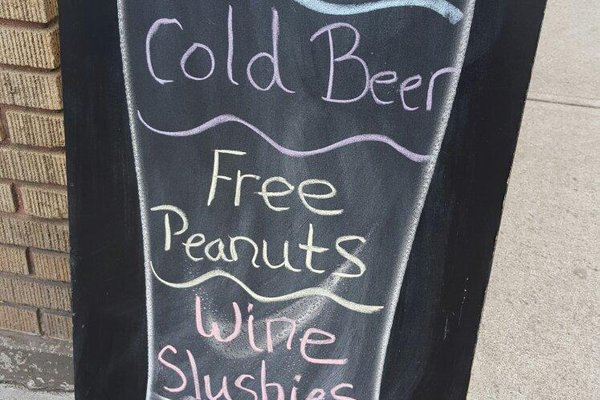 Cold Beer
Free
Peanuts
Wine
Slushies